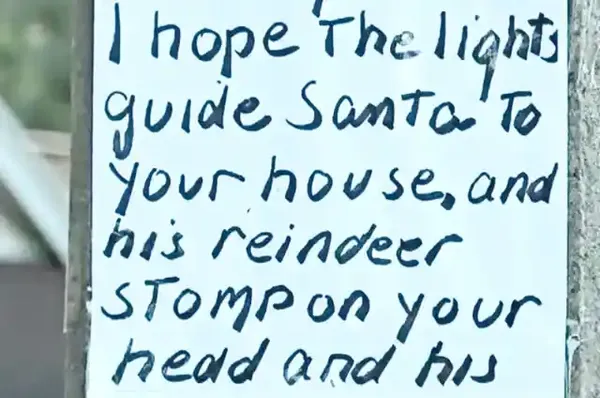 I hope The lights
guide Santa To
your house, and
his reindeer
STomp on your
head and his